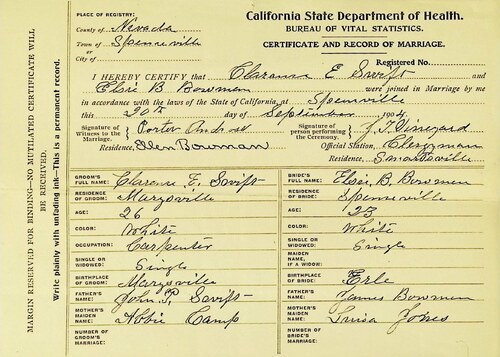 MARGIN RESERVED FOR BINDING—NO MUTILATED CERTIFICATE WILL
BE RECEIVED.
Write plainly with unfading ink—This is a permanent record.
PLACE OF REGISTRY:
County of Nevada
Town of
or
City of
California State Department of Health.
BUREAU OF VITAL STATISTICS.
CERTIFICATE AND RECORD OF MARRIAGE.
Registered No.
I HEREBY CERTIFY that Clarence E Swift and
Elsie B Bowman were joined in Marriage by me
in accordance with the laws of the State of California, at
this 20th day of September 1904
Signature of Witness to the Marriage, Porter
Signature of person performing the Ceremony, J. T. Vineyard
Residence, Glen Bowman
Official Station, Clergyman
Residence, Smartsville
GROOM'S FULL NAME: Clarence E. Swift
RESIDENCE OF GROOM: Marysville
AGE: 26
COLOR: White
OCCUPATION: Carpenter
SINGLE OR WIDOWED: Single
BIRTHPLACE OF GROOM: Marysville
FATHER'S NAME: John P. Swift
MOTHER'S MAIDEN NAME: Abbie Camp
NUMBER OF GROOM'S MARRIAGE:
BRIDE'S FULL NAME: Elsie B. Bowman
RESIDENCE OF BRIDE:
AGE: 23
COLOR: White
SINGLE OR WIDOWED: Single
MAIDEN NAME, IF A WIDOW:
BIRTHPLACE OF BRIDE: Erle
FATHER'S NAME: James Bowman
MOTHER'S MAIDEN NAME: Luisa Jones
NUMBER OF BRIDE'S MARRIAGE: